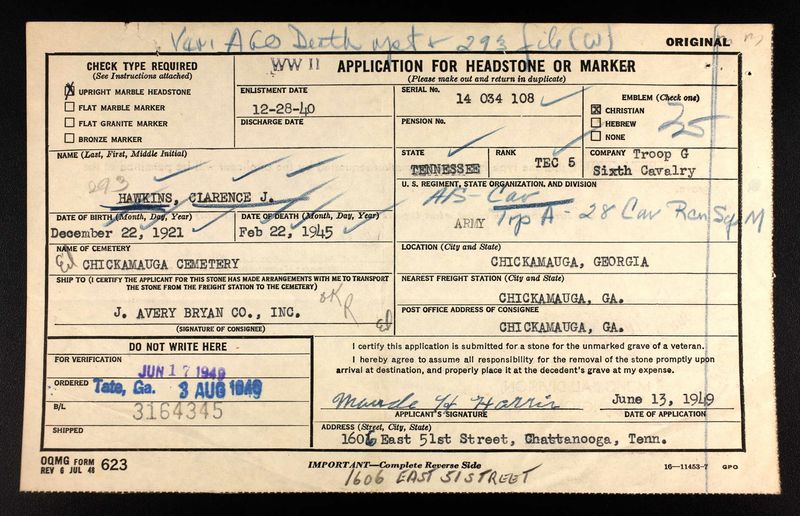 Veri AGO Death rpt + 293 file (W)
ORIGINAL
CHECK TYPE REQUIRED
(See Instructions attached)
X UPRIGHT MARBLE HEADSTONE
FLAT MARBLE MARKER
FLAT GRANITE MARKER
BRONZE MARKER
WW II APPLICATION FOR HEADSTONE OR MARKER
(Please make out and return in duplicate)
ENLISTMENT DATE
12-28-40
DISCHARGE DATE
SERIAL No.
14 034 108
PENSION No.
EMBLEM (Check one)
X CHRISTIAN
HEBREW
NONE
25
STATE
TENNESSEE
RANK
TEC 5
COMPANY Troop G
Sixth Cavalry
NAME (Last, First, Middle Initial)
293
HAWKINS, CLARENCE J.
U. S. REGIMENT, STATE ORGANIZATION, AND DIVISION
A/S - Cav
ARMY
Trp A - 28 Cav Rcn Sq M
DATE OF BIRTH (Month, Day, Year)
December 22, 1921
DATE OF DEATH (Month, Day, Year)
Feb 22, 1945
NAME OF CEMETERY
CHICKAMAUGA CEMETERY
LOCATION (City and State)
CHICKAMAUGA, GEORGIA
SHIP TO (I CERTIFY THE APPLICANT FOR THIS STONE HAS MADE ARRANGEMENTS WITH ME TO TRANSPORT
THE STONE FROM THE FREIGHT STATION TO THE CEMETERY)
OK R
J. AVERY BRYAN CO., INC.
(SIGNATURE OF CONSIGNEE)
NEAREST FREIGHT STATION (City and State)
CHICKAMAUGA, GA.
POST OFFICE ADDRESS OF CONSIGNEE
CHICKAMAUGA, GA.
DO NOT WRITE HERE
FOR VERIFICATION
JUN 17 1949
ORDERED
Tate, Ga. 3 AUG 1949
B/L
3164345
SHIPPED
I certify this application is submitted for a stone for the unmarked grave of a veteran.
I hereby agree to assume all responsibility for the removal of the stone promptly upon
arrival at destination, and properly place it at the decedent's grave at my expense.
Maude H Harris
APPLICANT'S SIGNATURE
June 13, 1949
DATE OF APPLICATION
ADDRESS (Street, City, State)
1606 East 51st Street, Chattanooga, Tenn.
OQMG FORM
REV 6 JUL 48
623
IMPORTANT—Complete Reverse Side
16—11453-7 GPO
1606 EAST 51 STREET